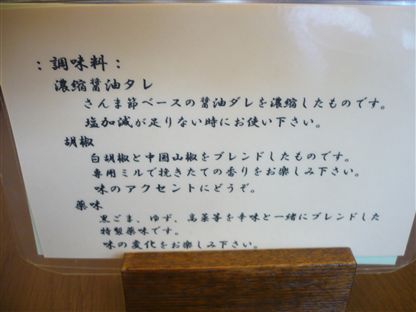 ：調味料：
濃縮醤油タレ
さんま節ベースの醤油ダレを濃縮したものです。
塩加減が足りない時にお使い下さい。
胡椒
白胡椒と中国山椒をブレンドしたものです。
専用ミルで挽きたての香りをお楽しみ下さい。
味のアクセントにどうぞ。
薬味
黒ごま、ゆず、高菜等を辛味と一緒にブレンドした
特製薬味です。
味の変化をお楽しみ下さい。